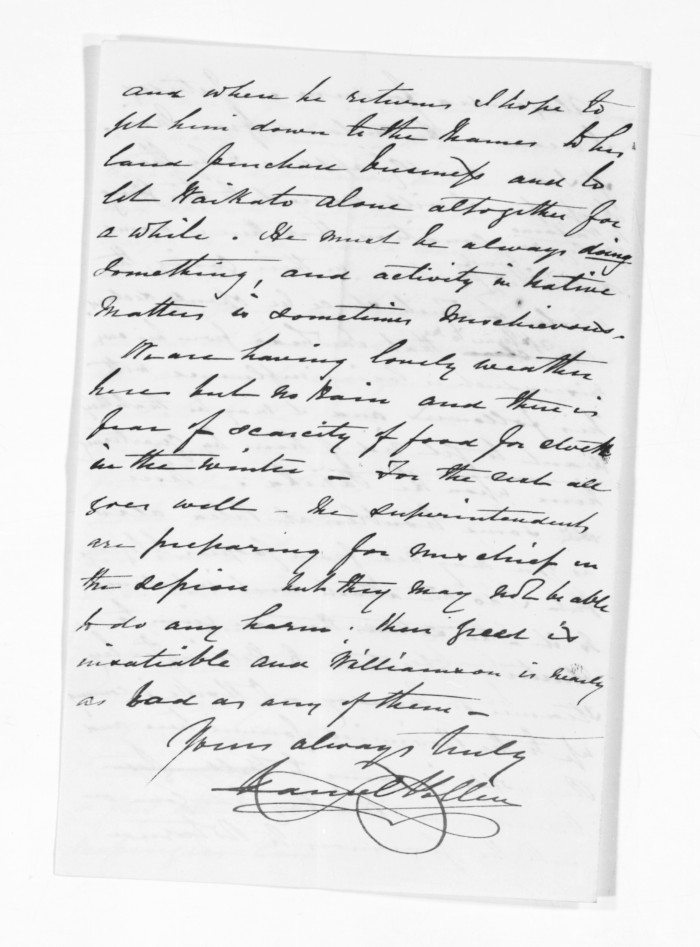 and when he returns I hope to
get him down to the Thames to his
land purchase business and to
let Waikato alone altogether for
a while. He must be always doing
something, and activity in Native
Matters is sometimes mischievous.
We are having lovely weather
here but no Rain and there is
fear of scarcity of food for stock
in the winter — For the rest all
goes well — The Superintendents
are preparing for mischief in
the session but they may not be able
to do any harm. Their greed is
insatiable and Williamson is nearly
as bad as any of them —
Yours always truly
Daniel Pollen